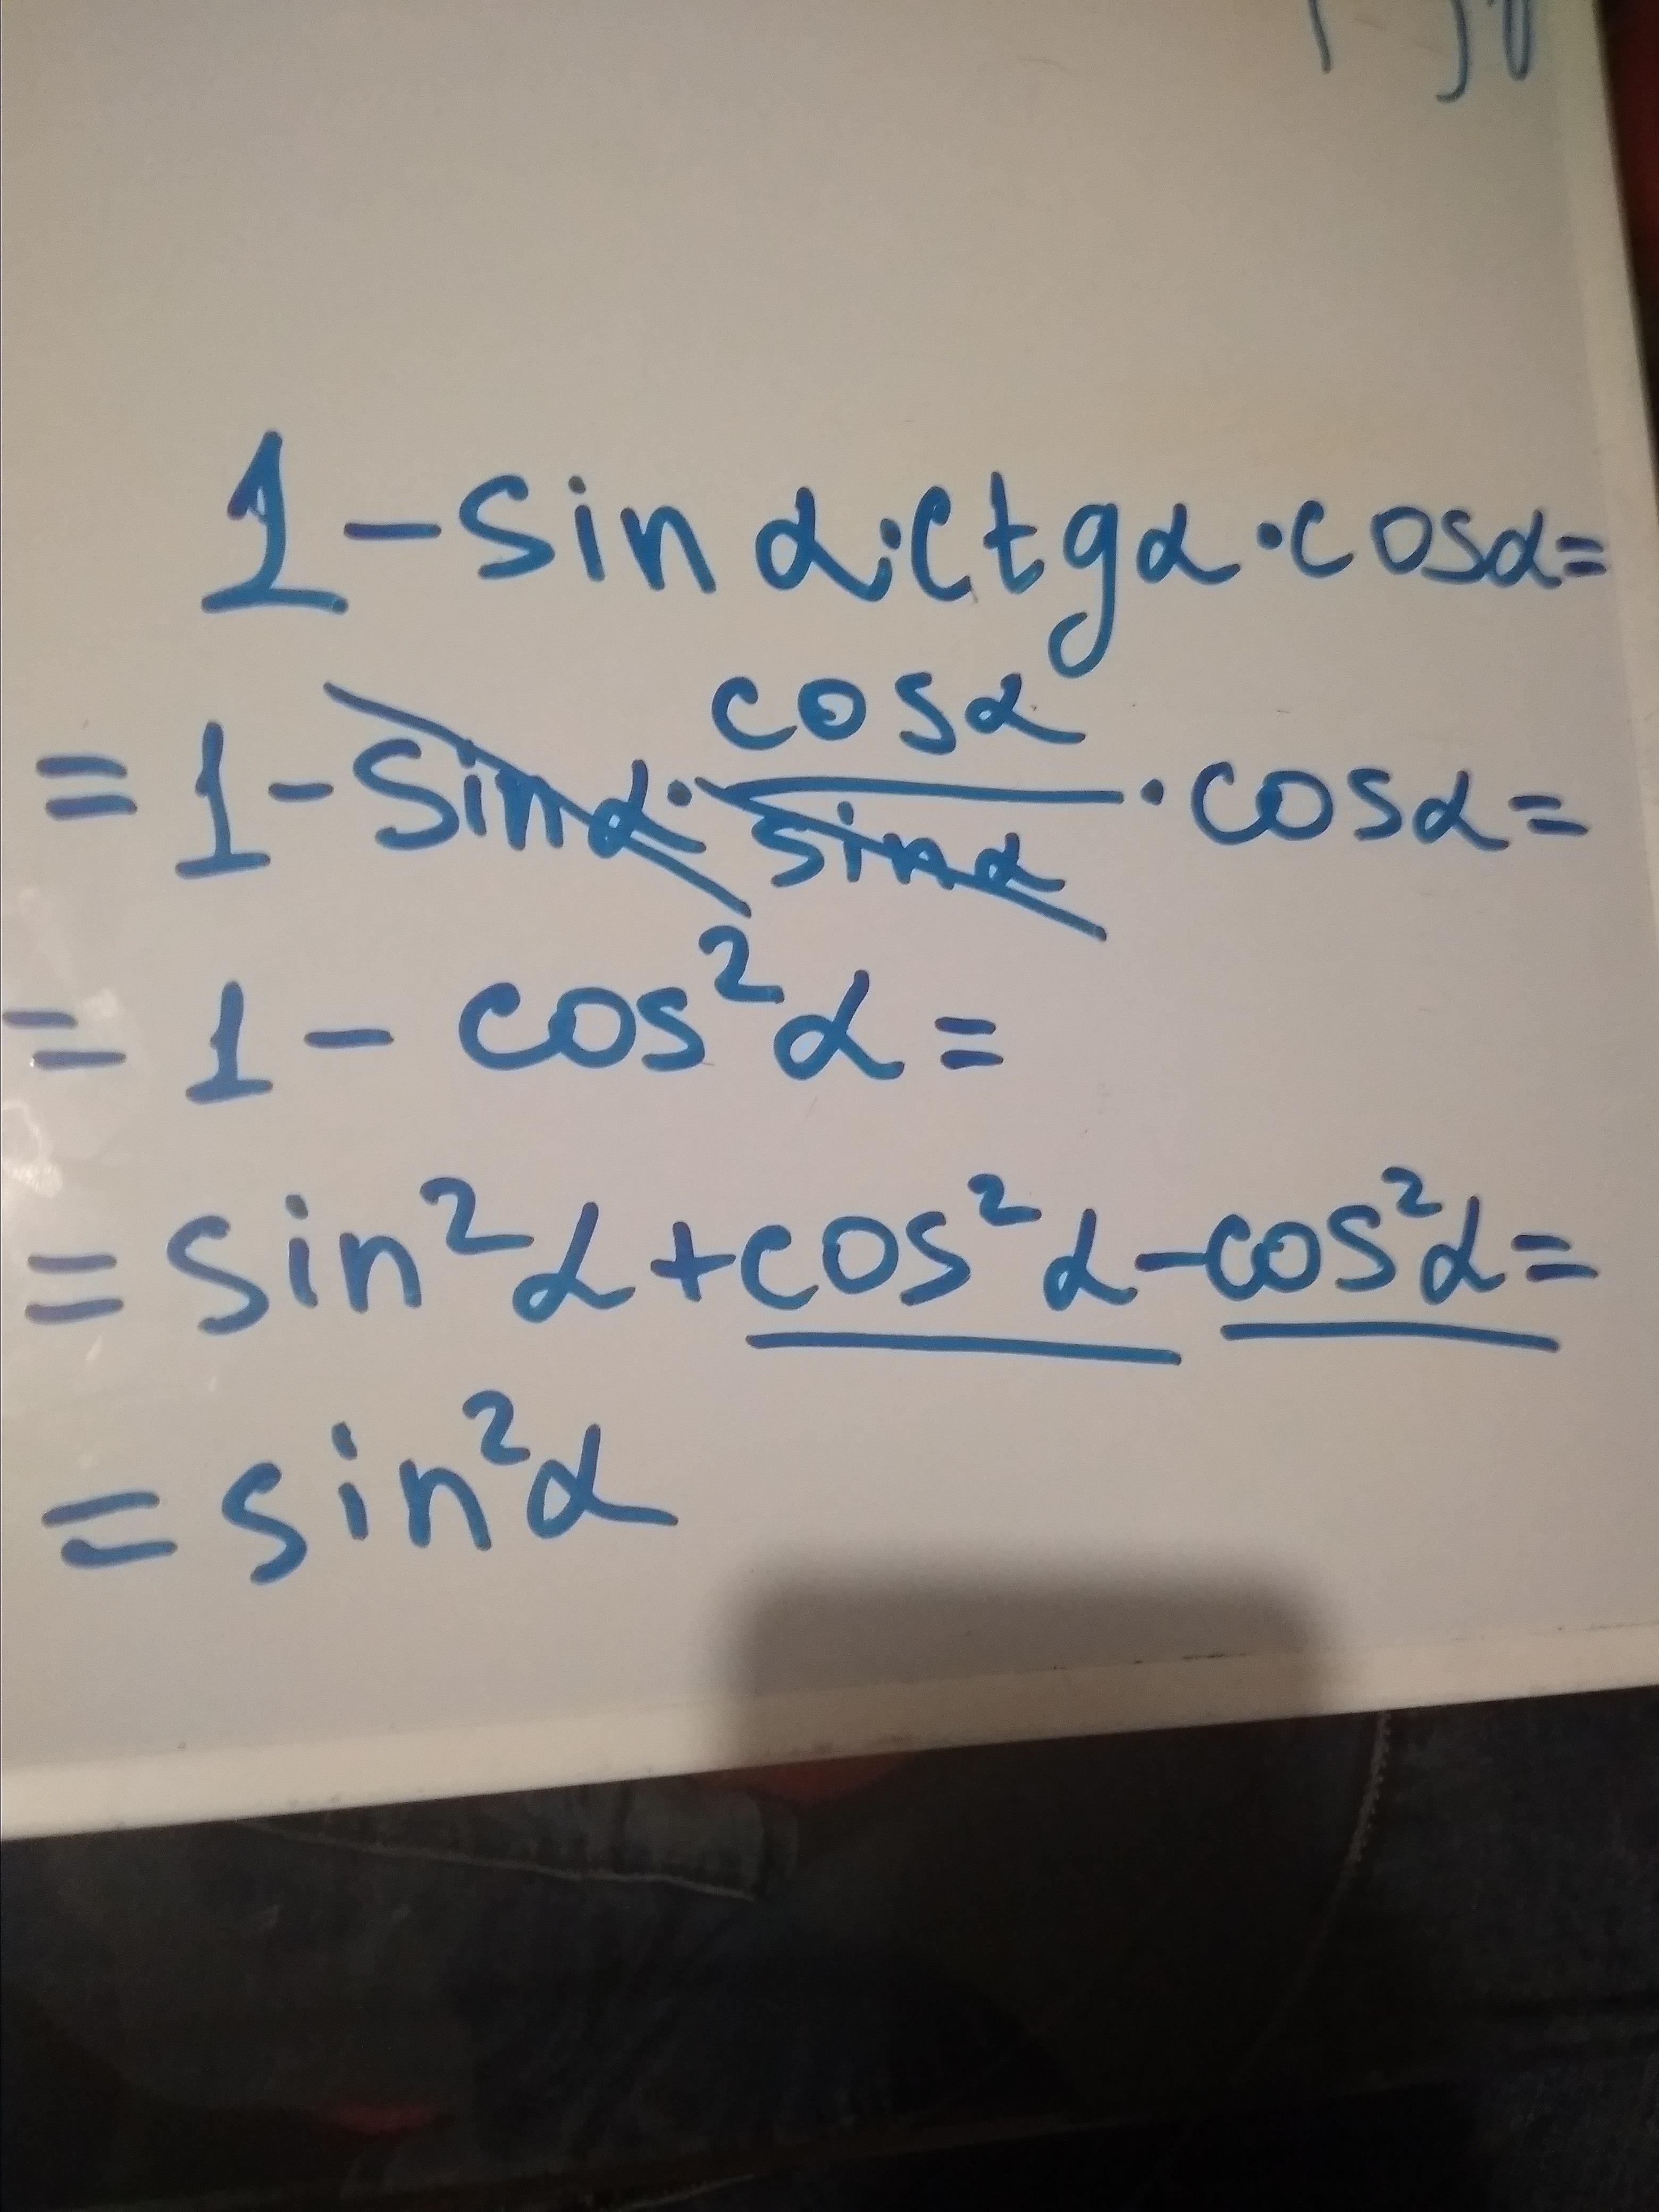 1 - sin α · ctg α · cos α =
= 1 - sin α · cos α / sin α · cos α =
= 1 - cos² α =
= sin² α + cos² α - cos² α =
= sin² α